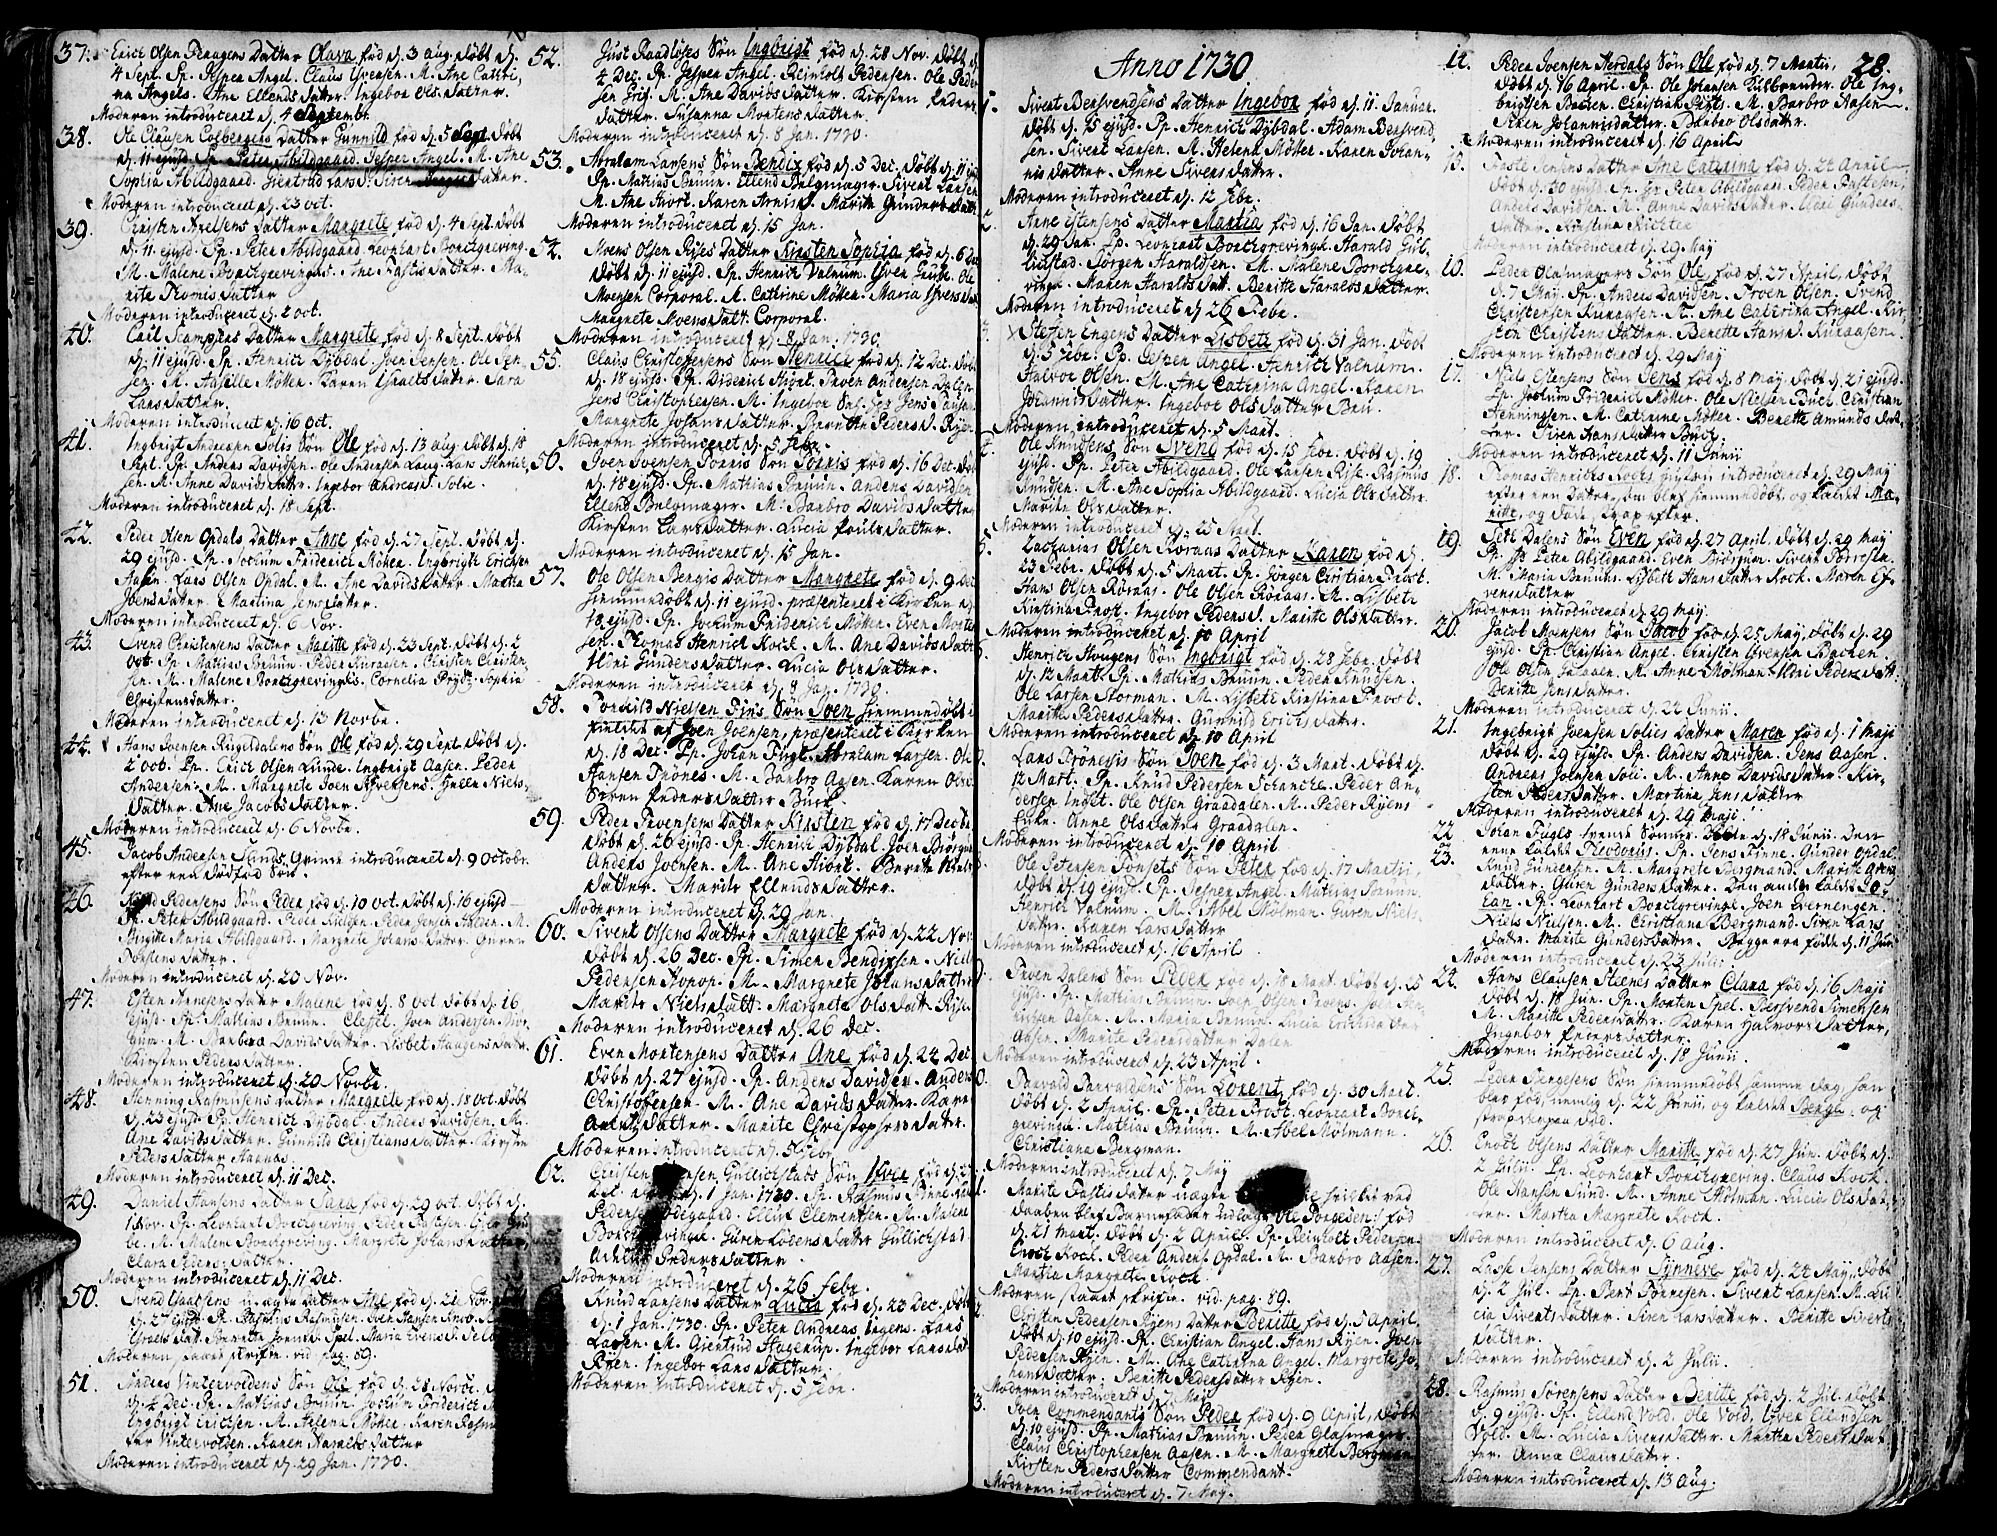 37. Erich Olsen Datter Olava fød d. 3 aug. døbt d.
4 Sept. Pp. Jesper Angel. Claus Iversen. M. Ane Cathri-
na Angels. Ane Ellends datter. Ingebor Ols datter.
Moderen introduceret d. 4 Septembr.
38. Ole Clausen Colbergens Datter Gunnild fød d. 5 Sept. døbt
d. 11 ejusd. Pp. Peter Abildgaard. Jesper Angel. M. Ane
Sophia Abildgaard. Giertrud Lars d. Siren datter.
Moderen introduceret d. 23 oct.
39. Christen Axelsens Datter Margrete fød d. 4 Sept. døbt
d. 11 ejusd. Pp. Peter Abildgaard. Leonhart Borchgreving.
M. Malene Borchgrevings. Ane datter. Ma-
rite Thomis datter
Moderen introduceret d. 2 oct.
40. Carl Datter Margrete fød d. 8 Sept. døbt
d. 11 ejusd. Pp. Henrich Dybdal. Joen Jensen. Ole Jen-
sen. M. Möller. Karen Israels datter. Sara
Lars datter.
Moderen introduceret d. 16 oct.
41. Ingbrigt Andersen Solis Søn Ole fød d. 13 aug. døbt d. 18
Sept. Pp. Anders Davidsen. Ole Andersen Haug. Lars Henrich
sen. M. Anne Davids datter. Ingebor Andreas d. Solie.
Moderen introduceret d. 18 Sept.
42. Peder Olsen Opdals Datter Anne fød d. 27 Sept. døbt d.
29 ejusd. Pp. Jochum Friderich Möller. Ingbrigt Erichsen
Aasen. Lars Olsen Opdal. M. Ane Davids datter. Martha
Joens datter. Martina Jens datter.
Moderen introduceret d. 6 Nov.
43. Svend Christensens Datter Maritte fød d. 23 Sept. døbt d. 2
Oct. Pp. Mathias Bruun. Peder Kuraasen. Christen Christen-
sen. M. Malene Borchgrevings. Cornelia Prytz. Sophia
Christens datter.
Moderen introduceret d. 13 Novbr.
44. Hans Joensen Rugeldalens Søn Ole fød d. 29 Sept. døbt d.
2 oct. Pp. Erich Olsen Lunde. Ingbrigt Aasen. Peder
Andersen. M. Margrete Joen Sivertsens. Guren Niels
datter. Ane Jacobs datter.
Moderen introduceret d. 6 Novbr.
45. Jacob Andersen introduceret d. 9 Octobr.
efter een dødfød Søn.
46. Knud Pedersens Søn Peder fød d. 10 oct. døbt d. 16 ejusd.
Pp. Peter Abildgaard. Peder Nielsen. Peder Jensen Halden. M.
Birgitte Maria Abildgaard. Margrete Johans datter. Guren
datter.
Moderen introduceret d. 20 Nov.
47. Esten Datter Malene fød d. 8 oct. døbt d. 16
ejusd. Pp. Mathias Bruun. Joen Andersen Bior-
gum. M. Barbera Davids datter. Lisbet Haagens datter.
Kirsten Peders datter.
Moderen introduceret d. 20 Novbr.
48. Henning Rasmusens Datter Margrete fød d. 18 oct. døbt
d. 23 ejusd. Pp. Henrich Dybdal. Anders Davidsen. M.
Ane Davids datter. Gunhild Christians datter. Kirsten
Peders datter Aasnas.
Moderen introduceret d. 11 Dec.
49. Daniel Hansens Datter Sara fød d. 29 oct. døbt d.
1 Nov. Pp. Leonhart Borchgreving. Peder
M. Malene Borchgreving. Margrete Johans datter.
Clara Peders datter.
Moderen introduceret d. 11 Dec.
50. Svend uægte Datter Ane fød d. 21 Nov.
d. 27 ejusd. Pp. Rasmus Rasmusen.
Moderen staaet skrifte. vid. pag. 89.
51. Anders Vintervoldens Søn Ole fød d. 28 Novbr.
d. 4 Dec. Pp. Mathias Bruun. Jochum Friderich
Ingbrigt Erichsen. M. Helena Möller. Karen Rasmus
ter Vintervolden. Karen Haralds datter
Moderen introduceret d. 29 Jan. 1730.
52. Just Raadlöses Søn Ingbrigt fød d. 28 Nov. døbt d.
4 Dec. Pp. Jesper Angel. Reinholt Pedersen. Ole Peder
sen Grif. M. Ane Davids datter. Kirsten Peders
datter. Susanna Mortens datter.
Moderen introduceret d. 8 Jan. 1730.
53. Abraham Larsens Søn Bendix fød d. 5 Dec. døbt d. 11 ejusd
Pp. Mathias Bruun. Ellend Belgmager. Sivert Larsen
M. Ane Hiort. Karen Arnis d. Marith Gunders datter
Moderen introduceret d. 15 Jan.
54. Moens Olsen Ryes Datter Kirsten Sophia fød d. 6 Dec
døbt d. 11 ejusd. Pp. Henrich Valnum. Iver Gunb. Ole
Moensen Corporal. M. Cathrine Möller. Maria Ivers dat
Margrete Moens datt. Corporal.
Moderen introduceret d. 8 Jan. 1730.
55. Claus Christophersens Søn Henrich fød d. 12 Dec. døbt
d. 18 ejusd. Pp. Diderich Hiort. Troen Andersen Dalen.
Jens Christophersen. M. Ingebor Sal. Hr. Jens Pausen
Margrete Johans datter. Berette Peders d. Ryen.
Moderen introduceret d. 5 Febr.
56. Joen Joensen Torris Søn Torris fød d. 16 Dec. døbt
d. 18 ejusd. Pp. Mathias Bruun. Anders Davidsen
Ellend Belgmager. M. Barbro Davids datter
Kirsten Lars datter. Lucia Pouls datter.
Moderen introduceret d. 15 Jan.
57. Ole Olsen Bergis Datter Margrete fød d. 9 Dec
hiemmedøbt d. 11 ejusd. præsenteret i Kirken d.
18 ejusd. Pp. Jochum Friderich Möller. Even Morten
sen. Thomas Henrich Kock. M. Ane Davids datt
Ildri Gunders datter. Lucia Ols datter.
Moderen introduceret d. 8 Jan. 1730.
58. Torkild Nielsen Fins Søn Joen hiemmedøbt i
af Joen Joensen, præsenteret i Kirken
d. 18 Dec. Pp. Johan Fugl. Abraham Larsen. Ole
Hansen Trönes. M. Barbro Aasen. Karen Ols
Søren Peders datter Buch.
59. Peder Datter Kirsten fød d. 17 Decbr
døbt d. 26 ejusd. Pp. Henrich Dybdal. Joen Biörgum
Anders Joensen. M. Ane Hiort. Berette Niels
datter. Marite Ellends datter.
Moderen introduceret d. 29 Jan.
60. Sivert Olsens Datter Margrete fød d. 22 Nov.
døbt d. 26 Dec. Pp. Simen Bendixsen. Niels
Pedersen Konop. M. Margrete Johans datter
Marite Niels datt. Margrete Ols datt. Ryen
Moderen introduceret d. 26 Dec.
61. Even Mortensens Datter Ane fød d. 24 Dec.
døbt d. 27 ejusd. Pp. Anders Davidsen. Anders
Christofersen. M. Ane Davids datter. Karen
datter. Marite Christophers datter.
Moderen introduceret d. 5 Febr.
62. Christen Gullichstads Søn Iver fød d.
Dec. d. 1 Jan. 1730. Pp. Rasmus
Pedersen Ellef Clementsen. M. Malene
Borchgrevingk. Guren datter Gullichstad
Peders datter.
Moderen introduceret d. 26 Febr.
Knud Larsens Datter Lucia fød d. 22 Dec. døbt
d. 1 Jan. 1730. Pp. Peter Andreas Ingens. Lars
Larsen. M. Giertrud Hagerup. Ingebor Lars dat
Ryen. Ingebor Lars datter.
Moderen introduceret d. 5 Febr.
Anno 1730
28.
1. Sivert Bersvendsens Datter Ingebor fød d. 11 Januar.
døbt d. 15 ejusd. Pp. Henrich Dybdal. Adam Bersvend
sen. Sivert Larsen. M. Helena Möller. Karen Johan-
nis datter. Anne Sivers datter.
Moderen introduceret d. 12 Febr.
2. Arne Estensens Datter Martha fød d. 16 Jan. døbt
d. 29 Jan. Pp. Leonhart Borchgrevingk. Harald Gul-
lichstad. Jörgen Haraldsen. M. Malene Borchgre-
vingk. Maren Haralds datt. Beritte Haralds datter.
Moderen introduceret d. 26 Febr.
3. Steffen Engens Datter Lisbeth fød d. 31 Jan. døbt
d. 5 Febr. Pp. Jesper Angel. Henrich Valnum.
Halvor Olsen. M. Ane Catrina Angel. Karen
Johannis datter. Ingebor Ols datter Bru.
Moderen introduceret d. 5 Mart.
Ole Knudsens Søn Svend fød d. 15 Febr. døbt d. 19
ejusd. Pp. Peter Abildgaard. Ole Larsen Riise. Rasmus
Knudsen. M. Ane Sophia Abildgaard. Lucia Ols datter.
Marite Ols datter.
Moderen introduceret d. 25 Mart.
5. Zacharias Olsen Röraas Datter Karen fød d.
23 Febr. døbt d. 5 Mart. Pp. Jörgen Christian Prost.
Hans Olsen Röraas. Ole Olsen Röraas. M. Lisbeth
Kirstina Prost. Ingebor Peders d. Marite Ols datter.
Moderen introduceret d. 10 April
Henrich Hougens Søn Ingbrigt fød d. 28 Febr. døbt
d. 12 Mart. Pp. Mathias Bruun. Peder Knudsen.
Ole Larsen Storman. M. Lisbeth Kirstina Prost.
Marithe Peders datter. Gunnild Erichs datter.
Moderen introduceret d. 10 April
Lars Trönesis Søn Joen fød d. 3 Mart. døbt d.
12 Mart. Pp. Knud Pedersen Schancke. Peder An-
dersen Indset. Ole Olsen Graadalen. M. Peder Ryens
Enke. Anne Ols datter Graadalen.
Moderen introduceret d. 10 April
Ole Tönsets Søn Peter fød d. 17 Martii,
døbt d. 19 ejusd. Pp. Jesper Angel. Mathias Bruun.
Henrich Valnum. M. Abel Mölman. Guren Niels
datter. Karen Lars datter
Moderen introduceret d. 16 April.
Troen Dalens Søn Peder fød d. 18 Mart. døbt d. 25
ejusd. Pp. Mathias Bruun. Joen Olsen
Aasen. M. Maria Bruun. Lucia Erichs datter
Aasen. Marite Peders datter Dalen
Moderen introduceret d. 23 April.
Parvald Parvaldsens Søn Lorentz fød d. 30 Mart.
døbt d. 2 April. Pp. Peter Prost. Leonhart Borch-
grevingk. Mathias Bruun. M. Abel Mölmann.
Christiana Bergman.
Moderen introduceret d. 7 May
Marite Fastes datter uægte
daaben blef Barnefader udlagt Ole Torgersen: fød
d. 21 Mart. døbt d. 2 April. Pp. Reinholt Pedersen.
Enoch Kock. Peder Anders Opdal. M. Barbro Aasen.
Martha Margrete Kock.
Moderen staaet skrifte. vid. pag. 89.
Christen Pedersen Ryens Datter Beritte fød d. 5 April.
døbt d. 10 ejusd. Pp. Christian Angel. Hans Ryen. Joen
Pedersen Ryen. M. Ane Catrina Angel. Margrete Jo-
hans datter. Beritte Peders datter Ryen.
Moderen introduceret d. 7 May
3. Iver Commendants Søn Peder fød d. 9 April, døbt
d. 10 ejusd. Pp. Mathias Bruun. Peder Glasmager.
Claus Christophersen Aasen. M. Margrete Bergman.
Kirsten Peders datter Commendant.
Moderen introduceret d. 7 May.
14. Peder Joensen Nordals Søn Ole fød d. 7 Martii,
døbt d. 16 April. Pp. Ole Johansen Guldbrander. Ole Ing-
brigtsen Bachen. Christian Prost. M. Barbro Aasen.
Siren Johannis datter. Barbro Ols datter.
Moderen introduceret d. 16 April
15. Faste Jensens Datter Ane Catrina fød d. 24 April
døbt d. 30 ejusd. Pp. Hr. Peter Abildgaard. Peder Fastesen,
Anders Davidsen. M. Anne Davids datter. Ildri Gunders
datter. Kristina Richter
Moderen introduceret d. 29 May
16. Peder Olmagers Søn Ole, fød d. 27 April, døbt
d. 7 May. Pp. Anders Davidsen. Troen Olsen. Svend
Christensen Kuraasen. M. Ane Catrina Angel. Kir-
sten Christens datter. Berette Hans d. Kuraasen.
Moderen introduceret d. 29 May
17. Niels Estensens Søn Jens fød d. 8 May. døbt d. 21 ejusd.
Pp. Jochum Friderich Möller. Ole Nielsen Buch. Christian
Henningsen. M. Cathrine Möller. Berette Amunds dat-
ter. Siren Hans datter Buch.
Moderen introduceret d. 11 Junii
18. Thomas Henrichs Kocks hustru introduceret d. 29 May
efter een datter, som blef hiemmedøbt, og kaldet Ma-
ritte, og døde strax efter.
19. Joen Dalens Søn Even fød d. 27 April. døbt d. 29 May
Pp. Hr. Peter Abildgaard. Even Biörgum. Sivert Torresen.
M. Maria Bruuns. Lisbeth Hans datter Kock. Maren Ef-
vens datter.
Moderen introduceret d. 29 May.
20. Jacob Moensens Søn Jacob fød d. 25 May, døbt d. 29
ejusd. Pp. Christian Angel. Christen Iversen Bachen.
Ole Olsen Galaaen. M. Anne Mölman. Ildri Peders datt.
Beritte Jens datter.
Moderen introduceret d. 24 Junii.
21. Ingebrigt Joensen Solies Datter Maren fød d. 1 Maji
døbt d. 29 ejusd. Pp. Anders Davidsen. Jens Aasen.
Andreas Joensen Soli. M. Anne Davids datter. Kir-
sten Peders datter. Martina Jens datter
Moderen introduceret d. 29 Maji.
22 Johan Fugls tvende Sønner døbte d. 18 Junii. Den
23. eene kaldet Theodorus. Pp. Jens Finne. Gunder Opdal.
Knud Gundersen. M. Margrete Bergmand. Maritte Arens
datter. Guren Gunders datter. Den anden kaldet Jo-
han. Pp. Leonhart Borchgrevingk. Joen Evernengen.
Niels Nielsen. M. Christiana Bergmand. Siren Lars
datter. Marite Gunders datter. Begge ere fødte d. 11 Junii
Moderen introduceret d. 23 Julii.
24. Hans Clausen Stienes Datter Clara fød d. 16 Maji
døbt d. 18 Jun. Pp. Morten Spel. Bersvend Simensen
M. Maritte Peders datter. Karen Halvors datter,
Ingebor Peders datter.
Moderen introduceret d. 18 Junii.
25. Peder Søn hiemmedøbt samme dag, han
blev fød, nemlig d. 22 Junii, og kaldet Børge, og
strax derpaa død.
26. Enoch Olsens Datter Maritte fød d. 27 Jun. døbt d.
2 Julii. Pp. Leonhart Borchgreving. Claus Kock.
Ole Hansen Sund. M. Anne Mölman. Lucia Ols dat-
ter. Martha Margrete Kock.
Moderen introduceret d. 6 Aug.
27. Lasse Jensens Datter Synneve fød d. 24 May, døbt
d. 2 Jul. Pp. Bent Tönnesen. Sivert Larsen. M. Lu-
cia Siverts datter. Siren Lars datter. Beritte Siverts
datter.
Moderen introduceret d. 2 Julii.
28. Rasmus Sörensens Datter Beritte fød d. 2 Jul. døbt
d. 9 ejusd. Pp. Ellend Vold. Ole Vold. Iver Ellendsen
Vold. M. Lucia Sivers datter. Martha Peders dat-
ter. Anna Claus datter.
Moderen introduceret d. 13 Aug.